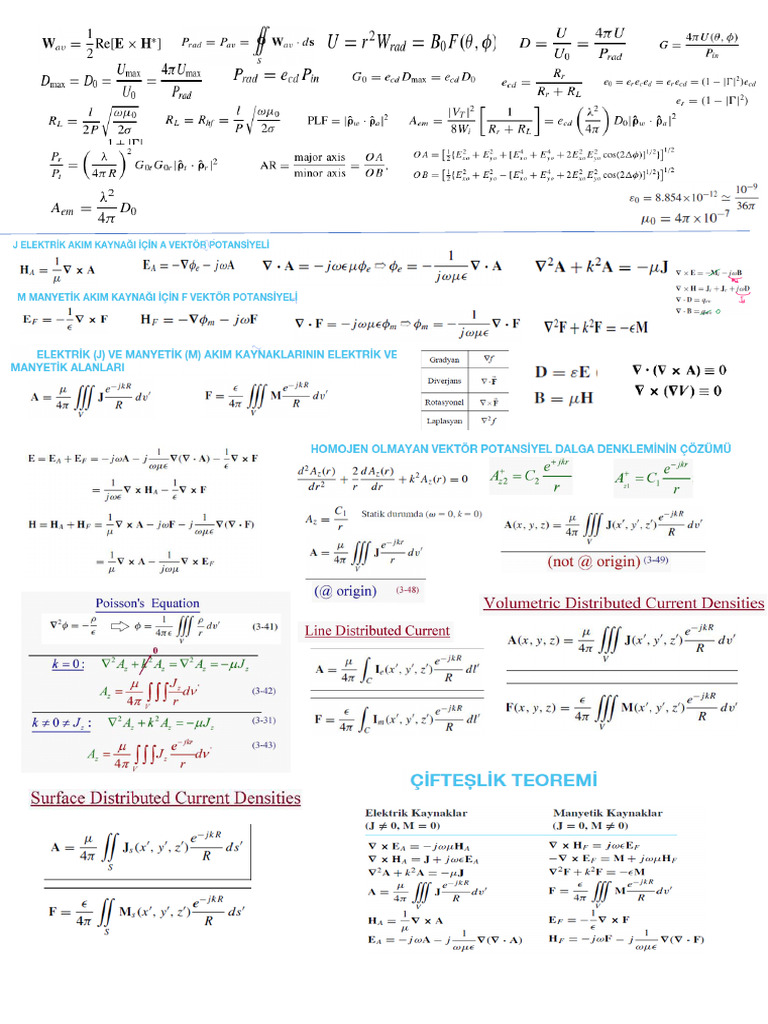 W_av = 1/2 Re[E × H*]   P_rad = P_av = ∯_S W_av · ds   U = r²W_rad = B₀F(θ, ϕ)   D = U/U₀ = 4πU/P_rad   G = 4πU(θ, ϕ)/P_in
D_max = D₀ = U_max/U₀ = 4πU_max/P_rad   P_rad = e_cd P_in   G₀ = e_cd D_max = e_cd D₀   e_cd = R_r/(R_r + R_L)   e₀ = e_r e_c e_d = e_r e_cd = (1 − |Γ|²)e_cd
e_r = (1 − |Γ|²)
R_L = l/2P √(ωμ₀/2σ)   R_L = R_hf = l/P √(ωμ₀/2σ)   PLF = |ρ̂_w · ρ̂_a|²   A_em = |V_T|²/8W_i [1/(R_r + R_L)] = e_cd (λ²/4π) D₀|ρ̂_w · ρ̂_a|²
P_r/P_t = (λ/4πR)² G₀r G₀r|ρ̂_t · ρ̂_r|²   AR = major axis/minor axis = OA/OB,   OA = [½{E²_xo + E²_yo + [E⁴_xo + E⁴_yo + 2E²_xo E²_yo cos(2Δϕ)]^1/2}]^1/2
OB = [½{E²_xo + E²_yo − [E⁴_xo + E⁴_yo + 2E²_xo E²_yo cos(2Δϕ)]^1/2}]^1/2
A_em = λ²/4π D₀   ε₀ = 8.854×10⁻¹² ≃ 10⁻⁹/36π
μ₀ = 4π×10⁻⁷
J ELEKTRİK AKIM KAYNAĞI İÇİN A VEKTÖR POTANSİYELİ
H_A = 1/μ ∇ × A   E_A = −∇ϕ_e − jωA   ∇ · A = −jωϵμϕ_e ⇨ ϕ_e = − 1/jωμϵ ∇ · A   ∇²A + k²A = −μJ
∇ × E = −M_i − jωB
∇ × H = J_i + J_c + jωD
∇ · D = q_ev
∇ · B = 0
M MANYETİK AKIM KAYNAĞI İÇİN F VEKTÖR POTANSİYELİ
E_F = −1/ϵ ∇ × F   H_F = −∇ϕ_m − jωF   ∇ · F = −jωμϵϕ_m ⇨ ϕ_m = − 1/jωμϵ ∇ · F   ∇²F + k²F = −ϵM
ELEKTRİK (J) VE MANYETİK (M) AKIM KAYNAKLARININ ELEKTRİK VE
MANYETİK ALANLARI
A = μ/4π ∭_V J e^−jkR/R dv′   F = ϵ/4π ∭_V M e^−jkR/R dv′
Gradyan ∇f
Diverjans ∇·F̄
Rotasyonel ∇×F̄
Laplasyan ∇²f
D = εE
B = μH
∇ · (∇ × A) ≡ 0
∇ × (∇V) ≡ 0
E = E_A + E_F = −jωA − j 1/ωμϵ ∇(∇ · A) − 1/ϵ ∇ × F
= 1/jωϵ ∇ × H_A − 1/ϵ ∇ × F
H = H_A + H_F = 1/μ ∇ × A − jωF − j 1/ωμϵ ∇(∇ · F)
= 1/μ ∇ × A − 1/jωμ ∇ × E_F
HOMOJEN OLMAYAN VEKTÖR POTANSİYEL DALGA DENKLEMİNİN ÇÖZÜMÜ
d²A_z(r)/dr² + 2/r dA_z(r)/dr + k²A_z(r) = 0   A⁺_z2 = C₂ e^+jkr/r   A⁺_z1 = C₁ e^−jkr/r
A_z = C₁/r   Statik durumda (ω = 0, k = 0)   A(x, y, z) = μ/4π ∭_V J(x′, y′, z′) e^−jkR/R dv′
A = μ/4π ∭_V J e^−jkr/r dv′   (not @ origin) (3-49)
(@ origin) (3-48)
Poisson's Equation
∇²ϕ = −ρ/ϵ ⇨ ϕ = 1/4πϵ ∭_V ρ/r dv′ (3-41)
0
k = 0: ∇²A_z + k²A_z = ∇²A_z = −μJ_z
A_z = μ/4π ∭_V J_z/r dv′ (3-42)
k ≠ 0 ≠ J_z: ∇²A_z + k²A_z = −μJ_z (3-31)
A_z = μ/4π ∭_V J_z e^−jkr/r dv′ (3-43)
Line Distributed Current
A = μ/4π ∫_C I_e(x′, y′, z′) e^−jkR/R dl′
F = ϵ/4π ∫_C I_m(x′, y′, z′) e^−jkR/R dl′
Volumetric Distributed Current Densities
A(x, y, z) = μ/4π ∭_V J(x′, y′, z′) e^−jkR/R dv′
F(x, y, z) = ϵ/4π ∭_V M(x′, y′, z′) e^−jkR/R dv′
Surface Distributed Current Densities
A = μ/4π ∬_S J_s(x′, y′, z′) e^−jkR/R ds′
F = ϵ/4π ∬_S M_s(x′, y′, z′) e^−jkR/R ds′
ÇİFTEŞLİK TEOREMİ
Elektrik Kaynaklar   Manyetik Kaynaklar
(J ≠ 0, M = 0)   (J = 0, M ≠ 0)
∇ × E_A = −jωμH_A   ∇ × H_F = jωϵE_F
∇ × H_A = J + jωϵE_A   −∇ × E_F = M + jωμH_F
∇²A + k²A = −μJ   ∇²F + k²F = −ϵM
A = μ/4π ∭_V J e^−jkR/R dv′   F = ϵ/4π ∭_V M e^−jkR/R dv′
H_A = 1/μ ∇ × A   E_F = −1/ϵ ∇ × F
E_A = −jωA − j 1/ωμϵ ∇(∇ · A)   H_F = −jωF − j 1/ωμϵ ∇(∇ · F)